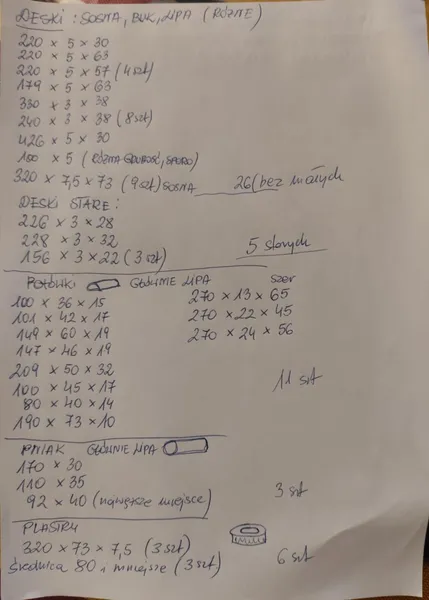 DESKI : SOSNA, BUK, LIPA (RÓŻNE)
220 × 5 × 30
220 × 5 × 63
220 × 5 × 57 (4szt)
179 × 5 × 63
330 × 3 × 38
240 × 3 × 38 (8szt)
426 × 5 × 30
100 × 5 (RÓŻNA GRUBOŚĆ, SPORO)
320 × 7,5 × 73 (9szt) SOSNA
26 (bez małych
DESKI STARE :
226 × 3 × 28
228 × 3 × 32
156 × 3 × 22 (3szt)
5 starych
POŁÓWKI GŁÓWNIE LIPA
100 × 36 × 15
101 × 42 × 17
149 × 60 × 19
147 × 46 × 19
209 × 50 × 32
100 × 45 × 17
80 × 40 × 14
190 × 73 × 10
szer
270 × 13 × 65
270 × 22 × 45
270 × 24 × 56
11 szt
PNIAK GŁÓWNIE LIPA
170 × 30
110 × 35
92 × 40 (najwęższe miejsce)
3 szt
PLASTRY
320 × 73 × 7,5 (3szt)
średnica 80 i mniejsze (3szt)
6 szt